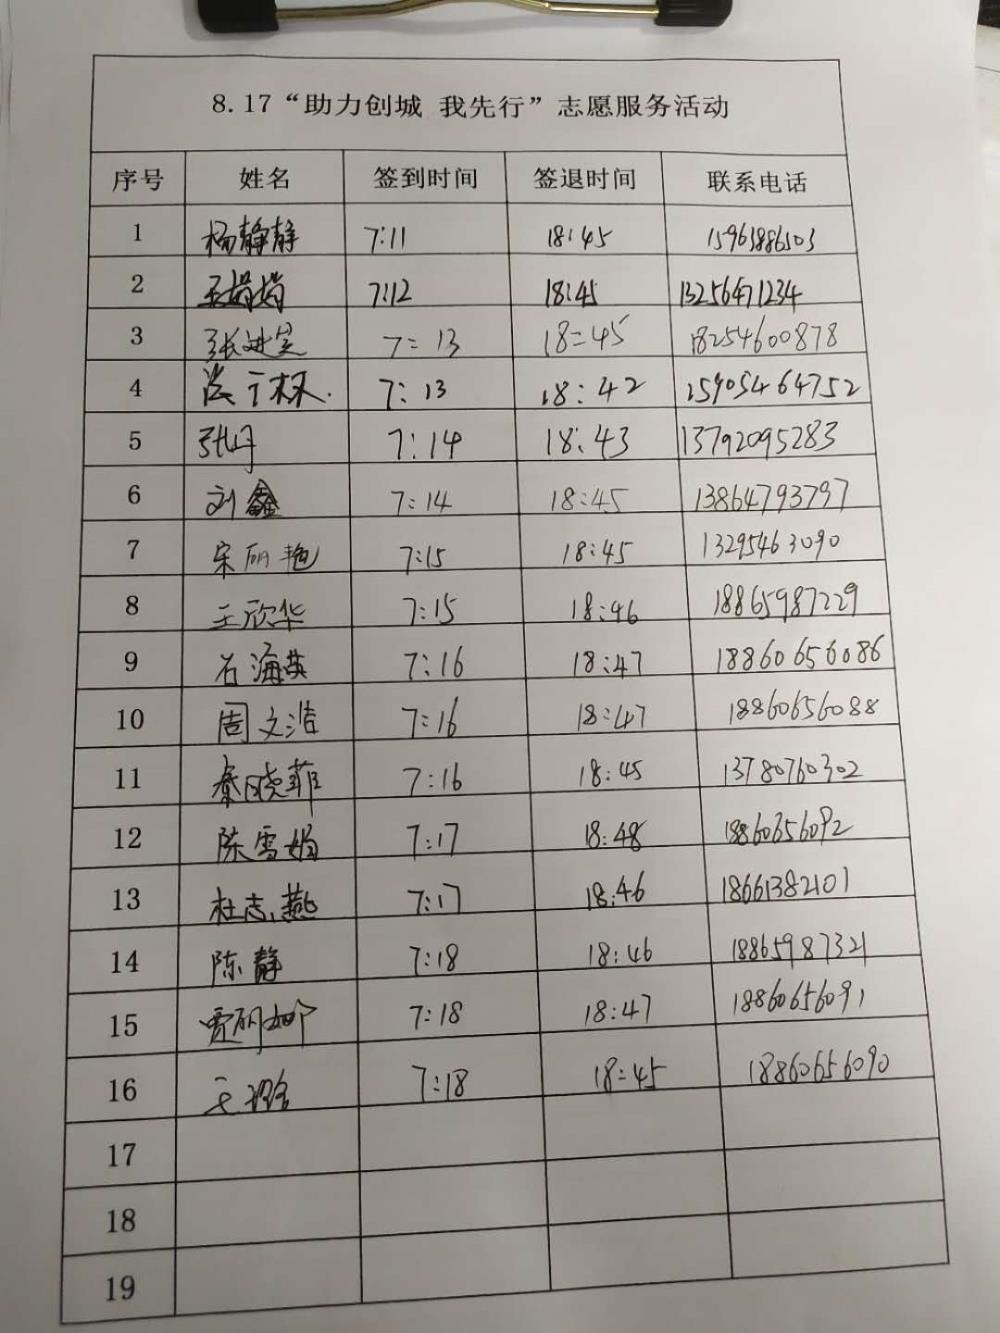 8.17“助力创城 我先行”志愿服务活动
序号 姓名 签到时间 签退时间 联系电话
1 杨静静 7:11 18:45 15963886503
2 王娟娟 7:12 18:45 13256471234
3 7:13 18:45 18254600878
4 7:13 18:42 15905464752
5 张丹 7:14 18:43 13792095283
6 刘鑫 7:14 18:45 13864793797
7 宋丽艳 7:15 18:45 13295463090
8 王欣华 7:15 18:46 18865987229
9 石海英 7:16 18:47 18860656086
10 周文浩 7:16 18:47 18860656088
11 秦晓菲 7:16 18:45 13780760302
12 陈雪娟 7:17 18:48 18860656092
13 杜志燕 7:17 18:46 18661382101
14 陈静 7:18 18:46 18865987321
15 贾丽娜 7:18 18:47 18860656091
16 王璐 7:18 18:45 18860656090
17
18
19